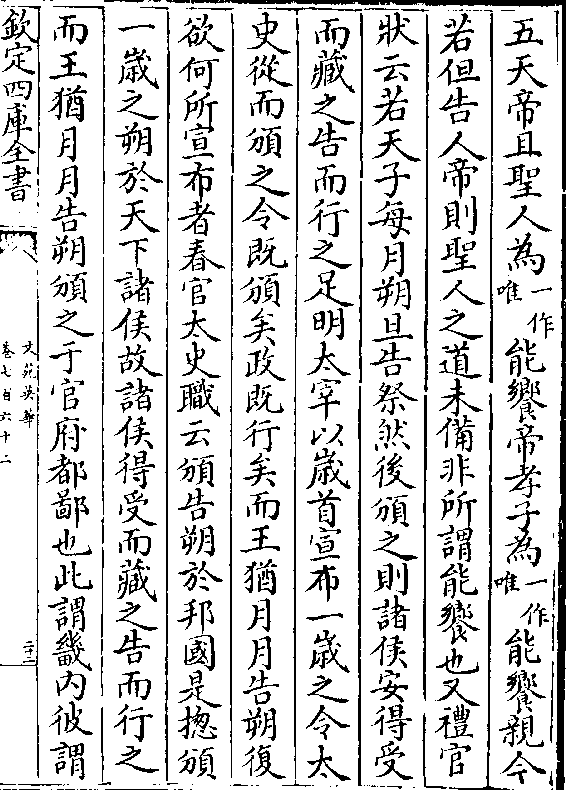 五天帝且聖人為一作唯能饗帝孝子為一作唯能饗親今
若但告人帝則聖人之道未備非所謂能饗也又禮官
狀云若天子每月朔旦告祭然後頒之則諸侯安得受
而藏之告而行之足明太宰以歲首宣布一歲之令太
史從而頒之令既頒矣政既行矣而王猶月月告朔復
欲何所宣布者春官太史職云頒告朔於邦國是揔頒
一歲之朔於天下諸侯故諸侯得受而藏之告而行之
而王猶月月告朔頒之于官府都鄙也此謂畿内彼謂
欽定四庫全書
文苑英華
卷七百六十二
二十二